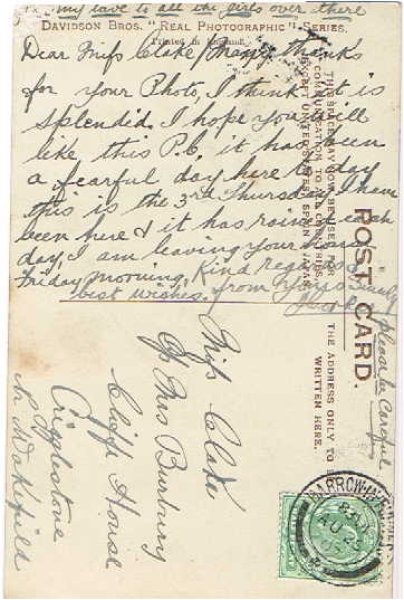 my love to all the girls over there
DAVIDSON BROS. "REAL PHOTOGRAPHIC" SERIES.
Printed in England.
Dear Miss Clake, Many thanks
for your Photo, I think it is
splendid. I hope you will
like this P.C. it has been
a fearful day here to day
this is the 3rd Thursday I have
been here & it has rained each
day, I am leaving your
Friday morning, Kind regards &
best wishes. from Yours Sincerely
please be careful
POST CARD.
THIS SPACE MAY NOW BE USED FOR
COMMUNICATION TO ALL COUNTRIES,
EXCEPT UNITED STATES, SPAIN & JAPAN.
THE ADDRESS ONLY TO BE
WRITTEN HERE.
Miss Clake
c/o Mrs Burbury
Cliffe House
Crigglestone
Nr Wakefield
BARROW-IN-FURNESS
AU 23
07